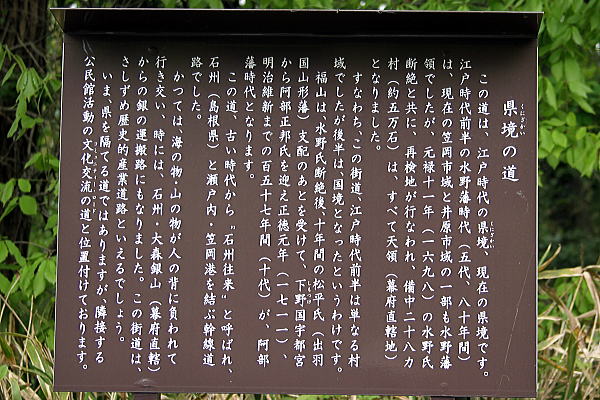 県境の道
くにざかい
この道は、江戸時代の県境、現在の県境です。
くにざかい
江戸時代前半の水野藩時代(五代、八十年間)
は、現在の笠岡市域と井原市域の一部も水野藩
領でしたが、元禄十一年(一六九八)の水野氏
断絶と共に、再検地が行なわれ、備中二十八カ
村(約五万石)は、すべて天領(幕府直轄地)
となりました。
すなわち、この街道、江戸時代前半は単なる村
域でしたが後半は、国境となったというわけです。
福山は、水野氏断絶後、十年間の松平氏(出羽
国山形藩)支配のあとを受けて、下野国宇都宮
から阿部正邦氏を迎え正徳元年(一七一一)、
明治維新までの百五十七年間(十代)が、阿部
藩時代となります。
この道、古い時代から〝石州往来〟と呼ばれ、
石州(島根県)と瀬戸内・笠岡港を結ぶ幹線道
路でした。
かつては「海の物・山の物が人の背に負われて
行き交い、時には、石州・大森銀山(幕府直轄)
からの銀の運搬路にもなりました。この街道は、
さしずめ歴史的産業道路といえるでしょう。
いま、県を隔てる道ではありますが、隣接する
公民館活動の文化交流の道と位置付けております。